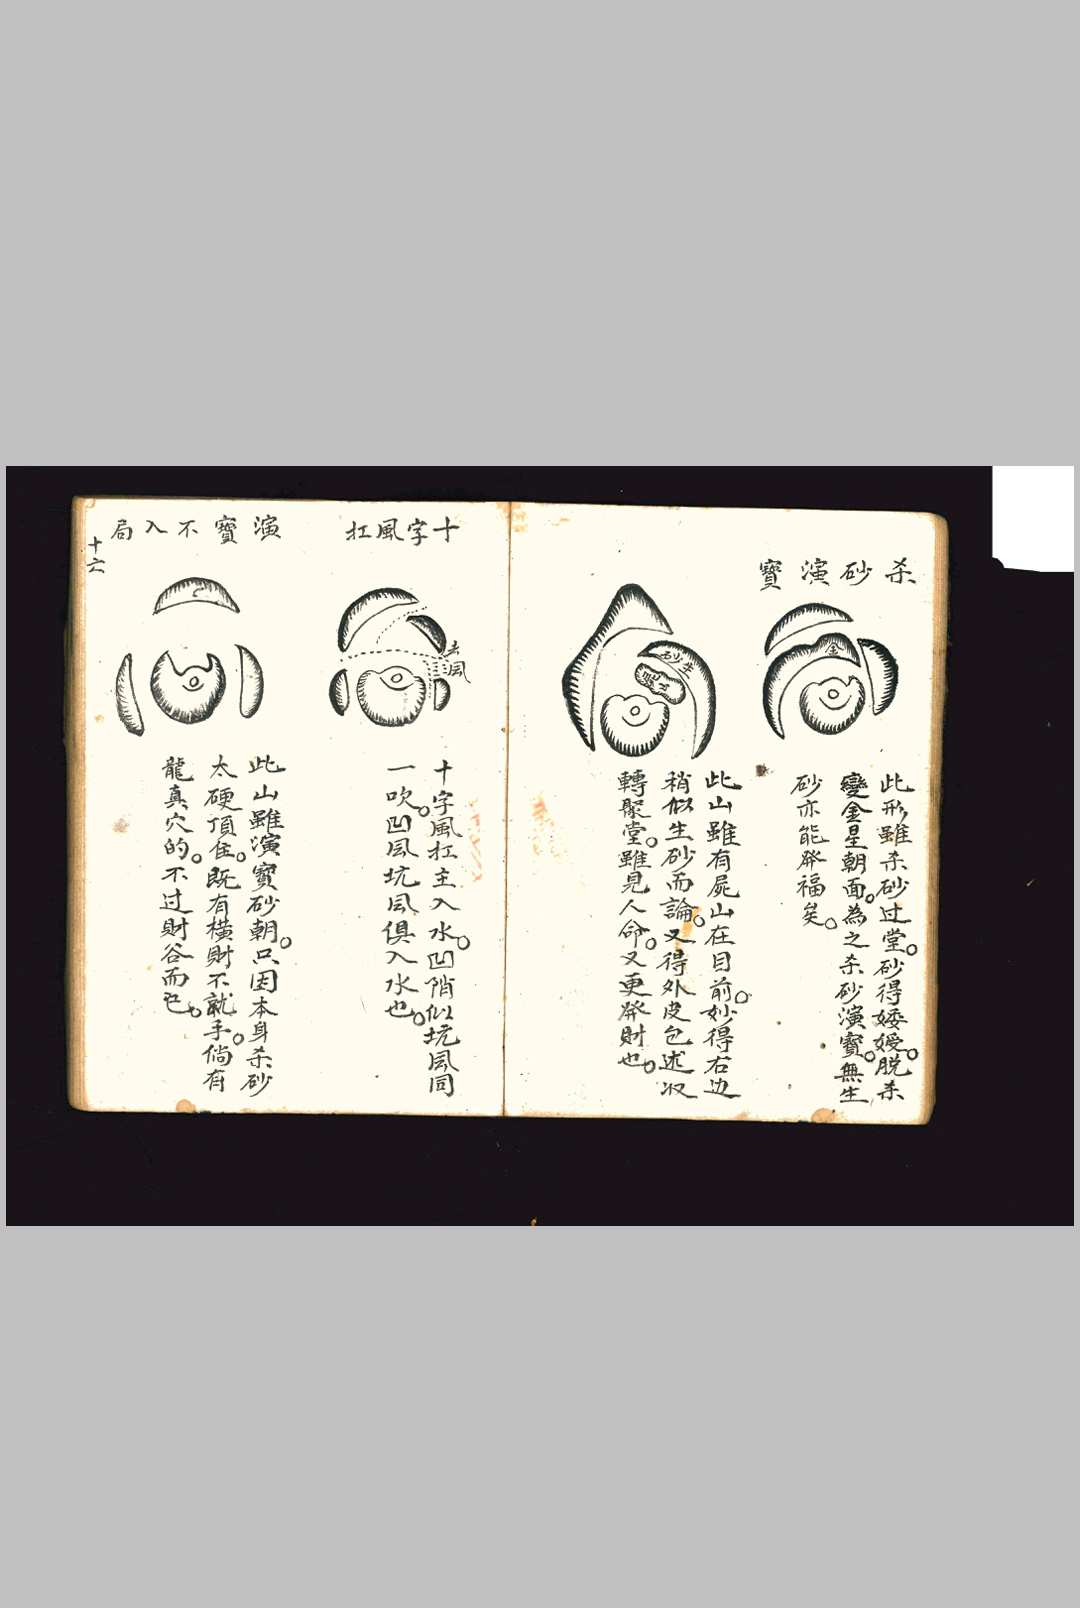 杀砂演寳
金
此形雖杀砂过堂。砂得㛐嫒。脱杀
變金星朝面。為之杀砂演寳。無生
砂亦能發福矣。
砂生
此山雖有屍山在目前。妙得右边
稍似生砂而論。又得外皮包述收
轉聚堂。雖見人命。又更發財也。
十字風扛
去風
十字風扛主入水。凹陗似坑風同
一吹。凹风坑风俱入水也。
演寳不入局
十六
此山雖演寳砂朝。只因本身杀砂
太硬頂住。既有橫財不就手。倘有
龍真穴的。不过財谷而已。